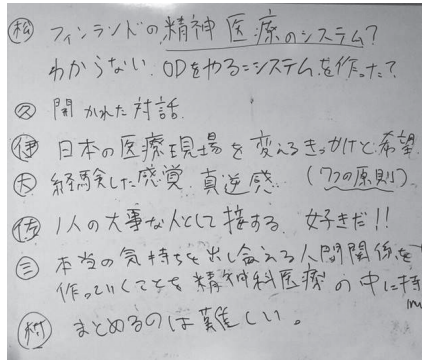 松 フィンランドの精神医療のシステム?
わからない. ODをやる=システムを作った?
久 開かれた対話.
伊 日本の医療現場を変えるきっかけと希望
大 経験した感覚. 真逆感. (7つの原則)
佐 1人の大事な人として接する. 好きだ!!
三 本当の気持ちを出し会える人間関係を
作っていくことを精神科医療の中に持
村 まとめるのは難しい。